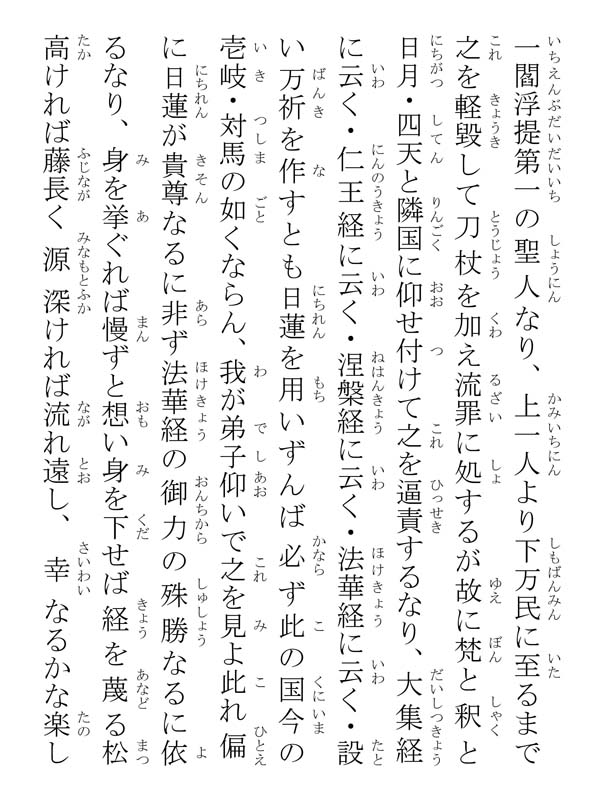 一閻浮提第一の聖人なり、上一人より下万民に至るまで
之を軽毀して刀杖を加え流罪に処するが故に梵と釈と
日月・四天と隣国に仰せ付けて之を逼責するなり、大集経
に云く・仁王経に云く・涅槃経に云く・法華経に云く・設
い万祈を作すとも日蓮を用いずんば必ず此の国今の
壱岐・対馬の如くならん、我が弟子仰いで之を見よ此れ偏
に日蓮が貴尊なるに非ず法華経の御力の殊勝なるに依
るなり、身を挙ぐれば慢ずと想い身を下せば経を蔑る松
高ければ藤長く源深ければ流れ遠し、幸なるかな楽し